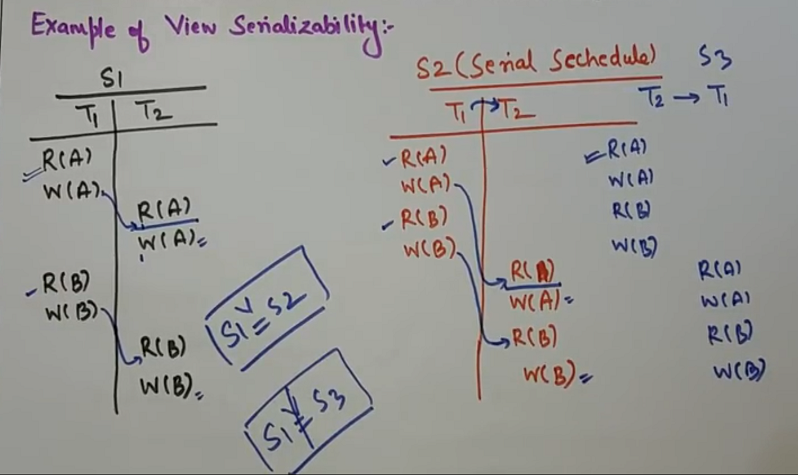 Example of View Serializability:-
S1
T1 T2
R(A)
W(A)
R(A)
W(A)
R(B)
W(B)
R(B)
W(B)
S1 V= S2
S1 V≠ S3
S2 (Serial Sechedule)
T1 → T2
R(A)
W(A)
R(B)
W(B)
R(A)
W(A)
R(B)
W(B)
S3
T2 → T1
R(A)
W(A)
R(B)
W(B)
R(A)
W(A)
R(B)
W(B)